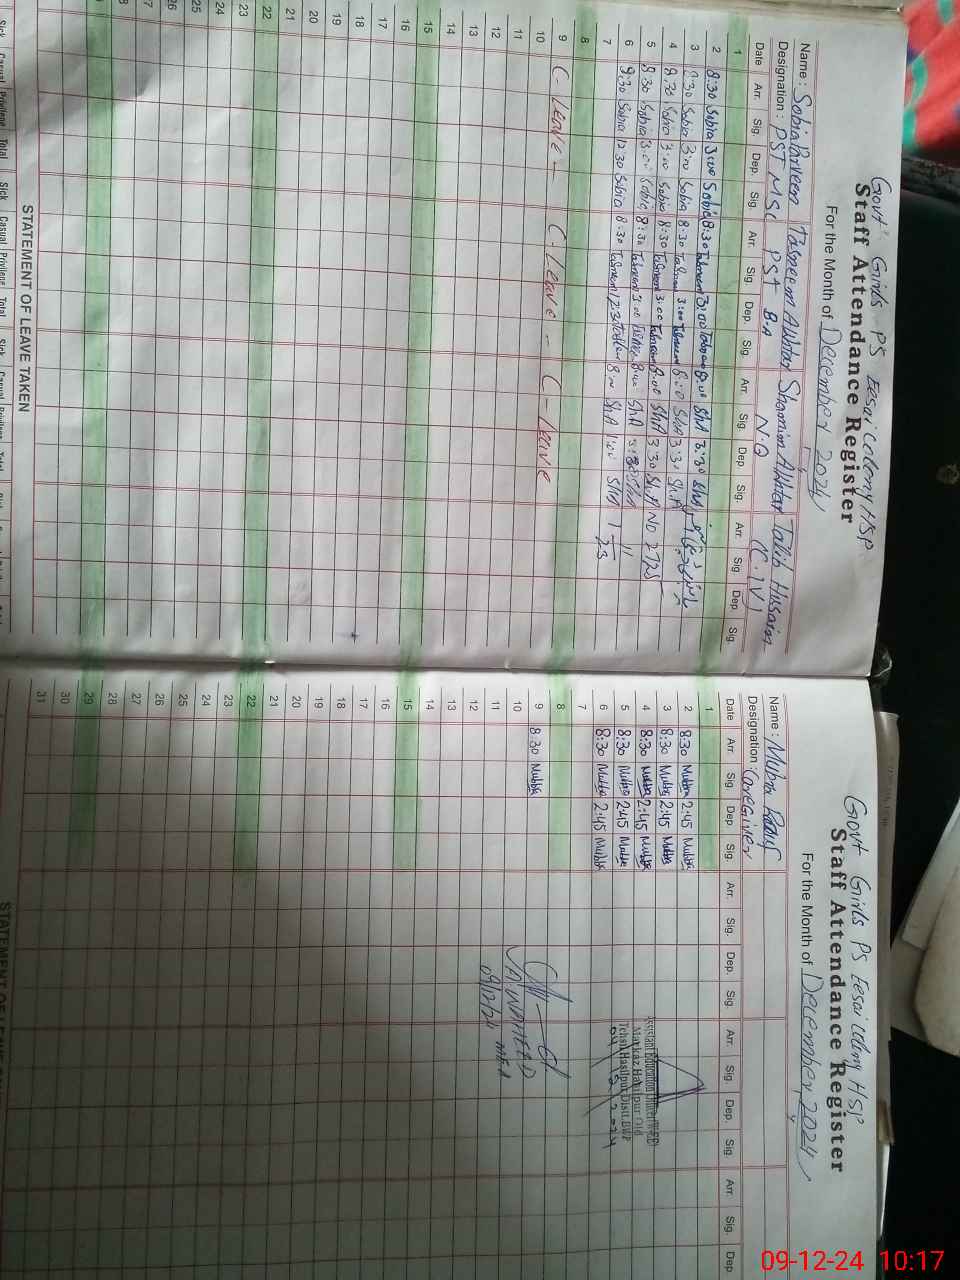 Govt Girls PS Eesai Colony HSP
Staff Attendance Register
For the Month of December 2024
Name : Sobia Parveen Tasneem Akhtar Shamim Akhtar Talib Hussain
Designation : PST MSc PST B.A N.Q (C.IV)
Date Arr. Sig. Dep. Sig. Arr. Sig. Dep. Sig. Arr. Sig. Dep Sig. Arr. Sig. Dep. Sig.
1
2 8:30 Sobia 3:00 Sobia 8:30 3:00 8:00 ShA 3:30 ShA
3 8:30 Sobia 3:00 Sobia 8:30 3:00 8:00 ShA 3:30 Sh.A
4 8:30 Sobia 3:00 Sobia 8:30 3:00 8:00 ShA 3:30 Sh.A NO 2725
5 8:30 Sobia 3:00 Sobia 8:30 3:00 8:00 ShA 3:30 ShA
6 8:30 Sobia 12:30 Sobia 8:30 12:30 8:00 ShA 1:00 ShA
7
8
9 C-Leave - C-Leave - C-Leave
10
11
12
13
14
15
16
17
18
19
20
21
22
23
24
25
26
STATEMENT OF LEAVE TAKEN
Sick Casual Privilege Total Sick Casual Privilege Total Sick Casual Privilege Total
Govt Girls PS Eesai Colony HSP
Staff Attendance Register
For the Month of December 2024
Name : Mubra Rauf
Designation : CareGiver
Date Arr. Sig Dep Sig. Arr. Sig. Dep. Sig. Arr. Sig. Dep. Sig. Arr. Sig. Dep
1
2 8:30 Mubba 2:45 Mubba
3 8:30 Mubba 2:45 Mubba
4 8:30 Mubba 2:45 Mubba
5 8:30 Mubba 2:45 Mubba
6 8:30 Mubba 2:45 Mubba
7
8
9 8:30 Mubba
10
11
12
13
14
15
16
17
18
19
20
21
22
23
24
25
26
27
28
29
30
31
Assistant Education Officer (W-EE)
Markaz Hasilpur Old
Tehsil Hasilpur Distt. BWP
A. WAHEED
09/12/24 MEA
09-12-24 10:17